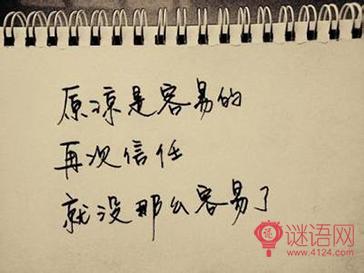 原凉是容易的
再次信任
就没那么容易了
谜语网
www.4124.com